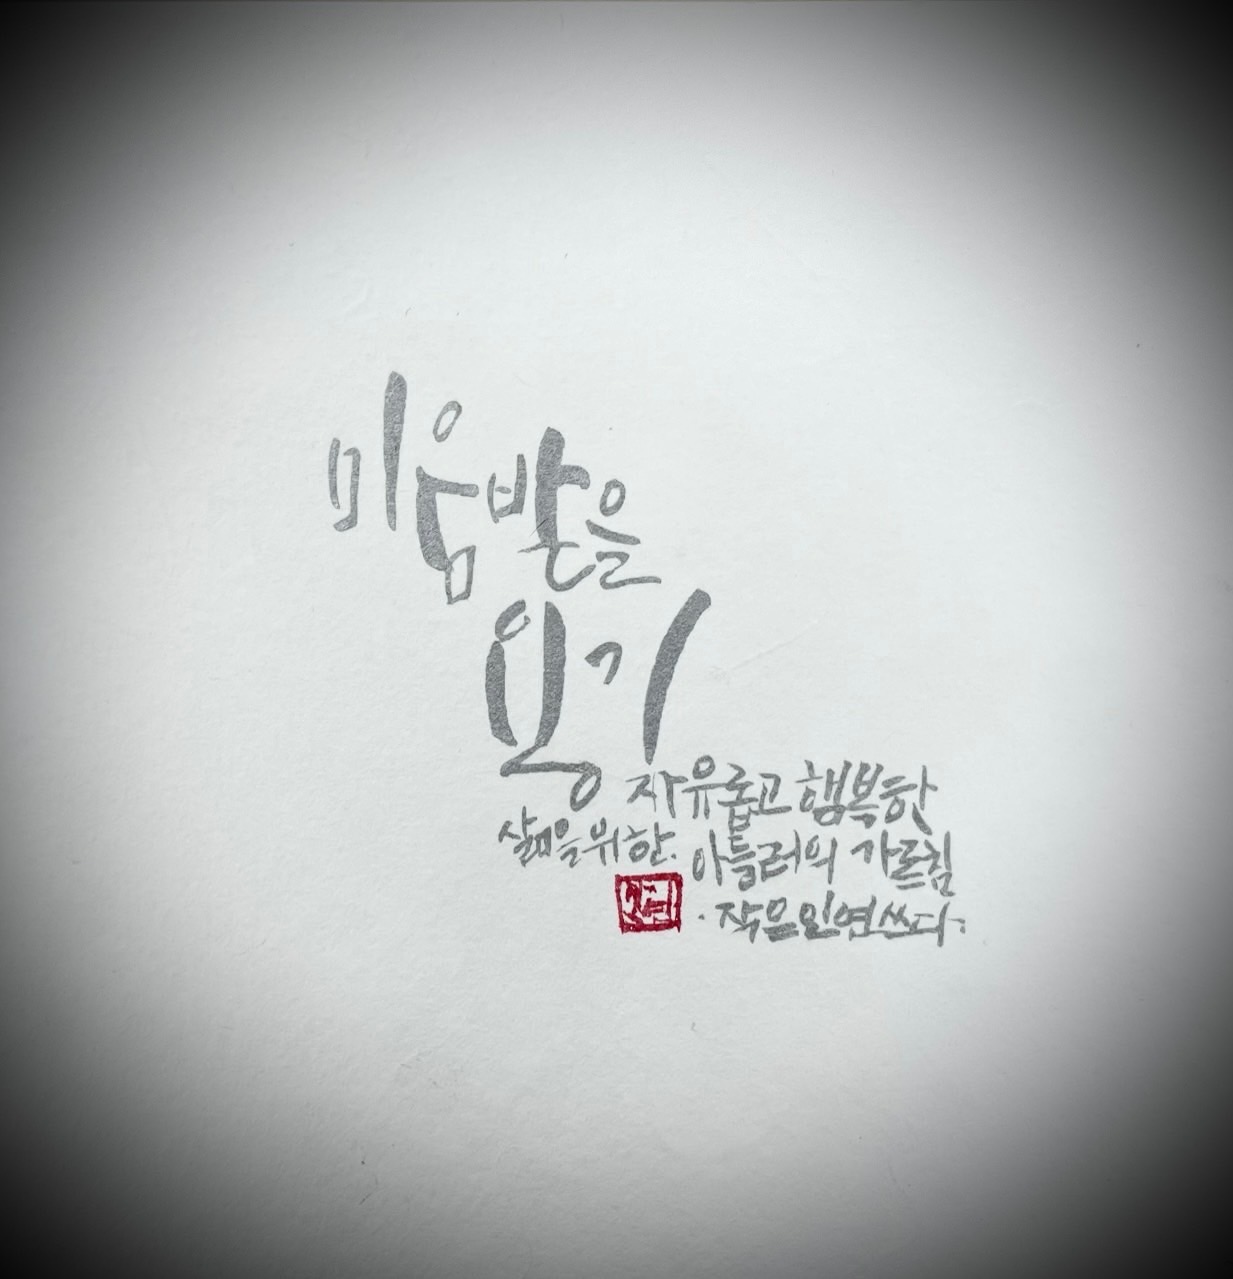 미움받을
용기
자유롭고 행복한
삶을 위한.
아들러의 가르침
· 작은인연쓰다.